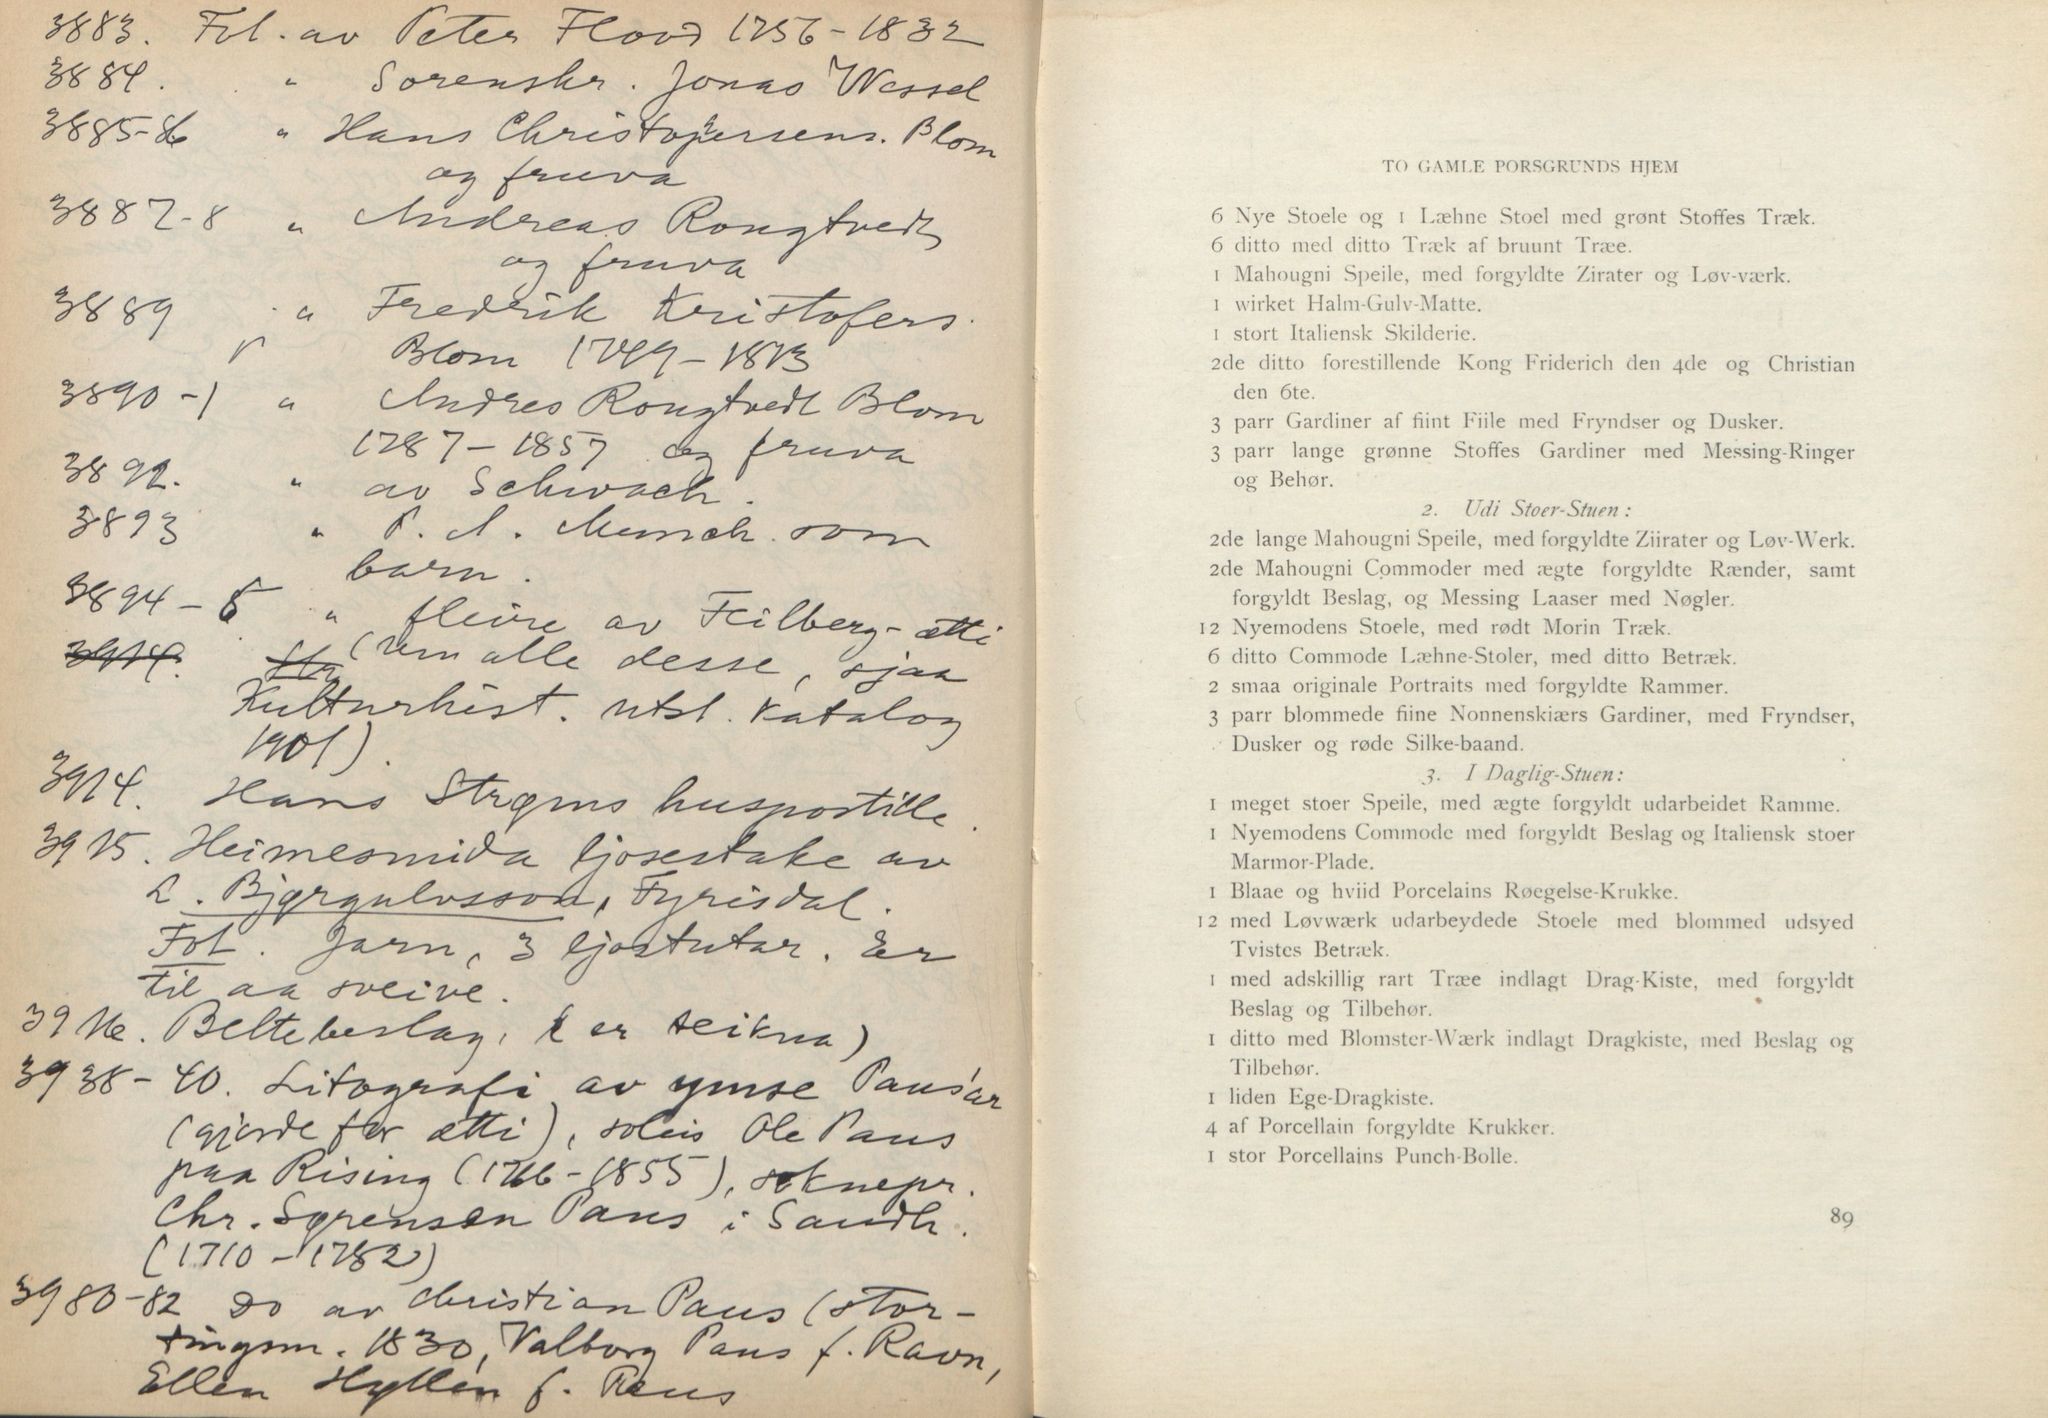 3883. Fot. av Peter Flood 1756-1832
3884. " Sorenskr. Jonas Wessel
3885-86 " Hans Christophersens. Blom
og fruva
3887-8 " Andreas Rougtvedt
og fruva
3889 " Fredrik Kristofers.
Blom 1749-1813
3890-1 " Andres Rougtvedt Blom
1787-1857 og fruva
3892. " av Schwach.
3893 " P. A. Munch som
barn.
3894-5 " fleire av Feilberg-ætti
3914. (Um alle desse, sjaa
Kulturhist. utst. katalog
1901).
3914. Hans Strøms huspostille.
3915. Heimesmida ljosestake av
L. Bjørgulvsson, Fyrisdal.
Fot. Jarn, 3 ljostutar. Er
til aa sveive.
3916. Beltebeslag, (er teikna)
3938-40. Litografi av ymse Paus'ar
(gjorde for ætti), soleis Ole Paus
paa Rising (1766-1855), soknepr.
Chr. Sørensen Paus i Sandh.
(1710-1782)
3980-82 Do av Christian Paus (stor-
tingsm. 1830, Valborg Paus f. Ravn,
Ellen Hyllén f. Paus
TO GAMLE PORSGRUNDS HJEM
6 Nye Stoele og 1 Læhne Stoel med grønt Stoffes Træk.
6 ditto med ditto Træk af bruunt Træe.
1 Mahougni Speile, med forgyldte Zirater og Løv-værk.
1 wirket Halm-Gulv-Matte.
1 stort Italiensk Skilderie.
2de ditto forestillende Kong Friderich den 4de og Christian
den 6te.
3 parr Gardiner af fiint Fiile med Fryndser og Dusker.
3 parr lange grønne Stoffes Gardiner med Messing-Ringer
og Behør.
2. Udi Stoer-Stuen:
2de lange Mahougni Speile, med forgyldte Ziirater og Løv-Werk.
2de Mahougni Commoder med ægte forgyldte Rænder, samt
forgyldt Beslag, og Messing Laaser med Nøgler.
12 Nyemodens Stoele, med rødt Morin Træk.
6 ditto Commode Læhne-Stoler, med ditto Betræk.
2 smaa originale Portraits med forgyldte Rammer.
3 parr blommede fiine Nonnenskiærs Gardiner, med Fryndser,
Dusker og røde Silke-baand.
3. I Daglig-Stuen:
1 meget stoer Speile, med ægte forgyldt udarbeidet Ramme.
1 Nyemodens Commode med forgyldt Beslag og Italiensk stoer
Marmor-Plade.
1 Blaae og hviid Porcelains Røegelse-Krukke.
12 med Løvwærk udarbeydede Stoele med blommed udsyed
Tvistes Betræk.
1 med adskillig rart Træe indlagt Drag-Kiste, med forgyldt
Beslag og Tilbehør.
1 ditto med Blomster-Wærk indlagt Dragkiste, med Beslag og
Tilbehør.
1 liden Ege-Dragkiste.
4 af Porcellain forgyldte Krukker.
1 stor Porcellains Punch-Bolle.
89